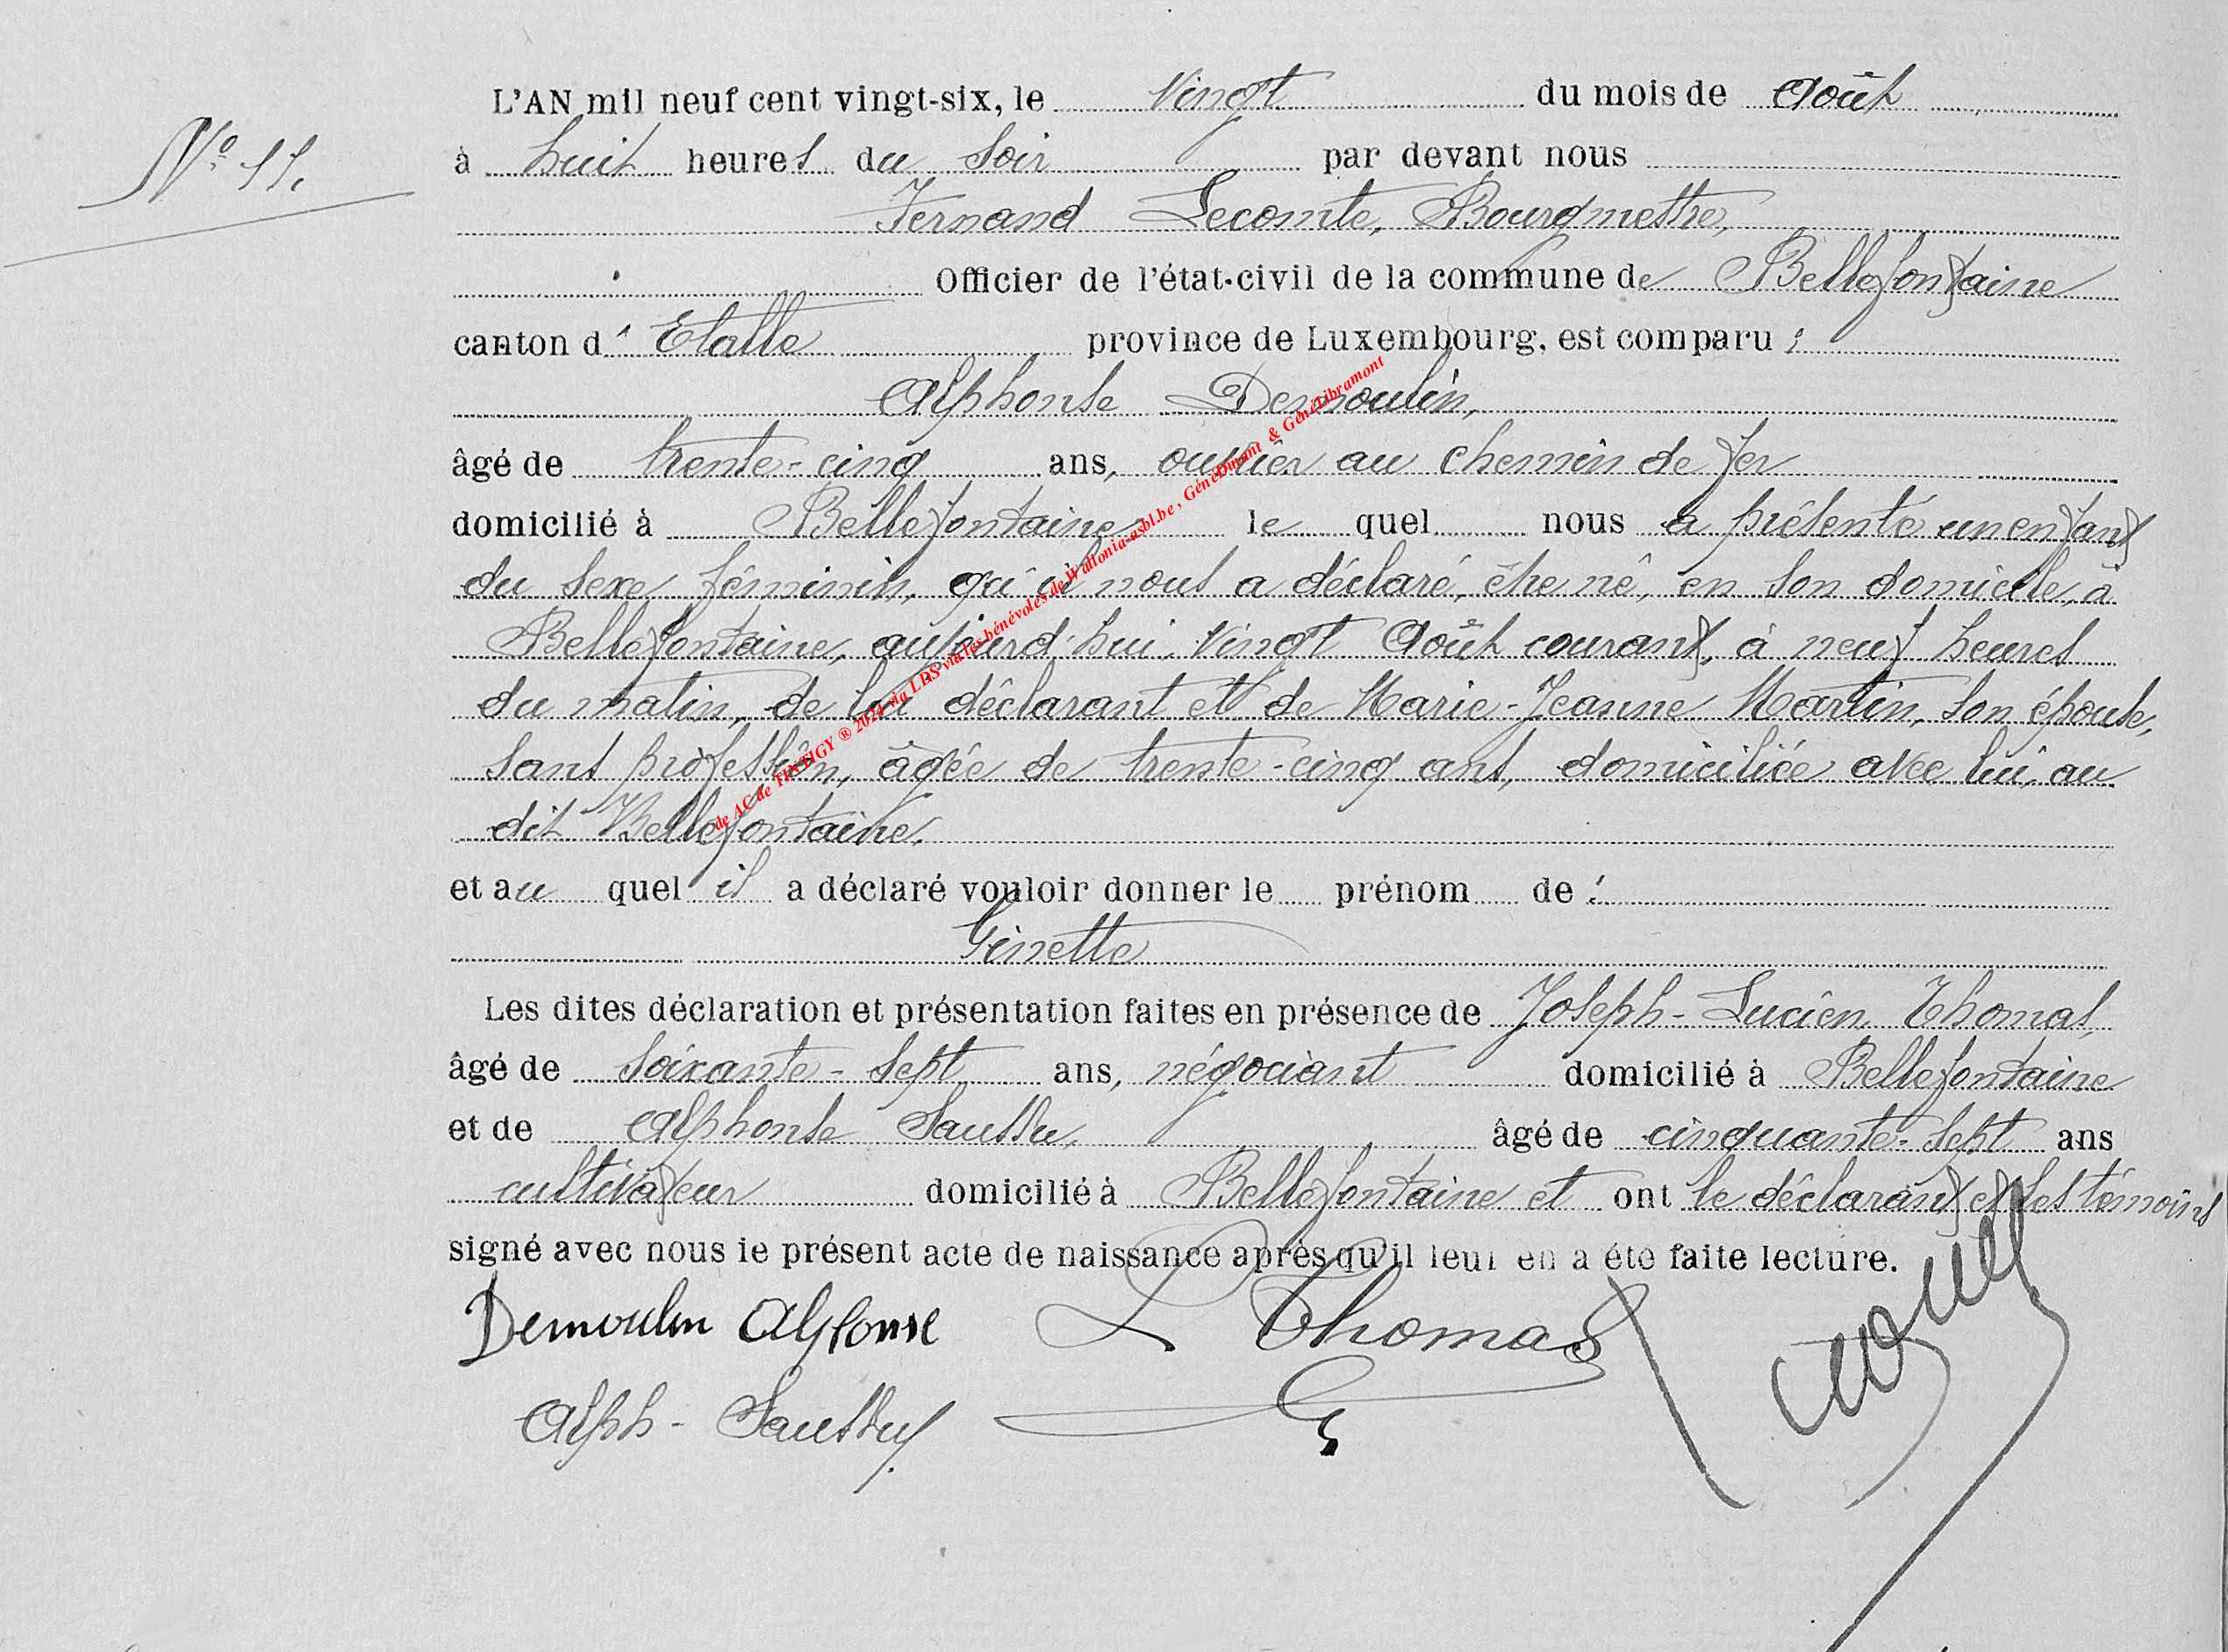 L'AN mil neuf cent vingt-six, le Vingt du mois de Août
N° 11.
à huit heures du Soir par devant nous
Fernand Lecomte, Bourgmestre,
Officier de l'état-civil de la commune de Bellefontaine
canton d' Etalle province de Luxembourg, est comparu :
Alphonse Demoulin,
âgé de trente-cinq ans, ouvrier au chemin de fer
domicilié à Bellefontaine le quel nous a présenté un enfant
du sexe féminin, qu'il nous a déclaré, être né, en son domicile, à
Bellefontaine, aujourd'hui, Vingt Août courant, à neuf heures
du matin, de lui déclarant et de Marie-Jeanne Martin, son épouse,
sans profession, âgée de trente-cinq ans, domiciliée avec lui, au
dit Bellefontaine.
et au quel il a déclaré vouloir donner le prénom de :
Ginette
Les dites déclaration et présentation faites en présence de Joseph-Lucien Thomas,
âgé de soixante-sept ans, négociant domicilié à Bellefontaine
et de Alphonse Saussu, âgé de cinquante-sept ans
cultivateur domicilié à Bellefontaine et ont le déclarant et les témoins
signé avec nous le présent acte de naissance après qu'il leur en a été faite lecture.
Demoulin Alphonse L Thomas
Alph- Saussuy
de AC de TINTIGY ® 2024 via LDS via les bénévoles de Wallonia-asbl.be, GénéDinant & GénéLibramont